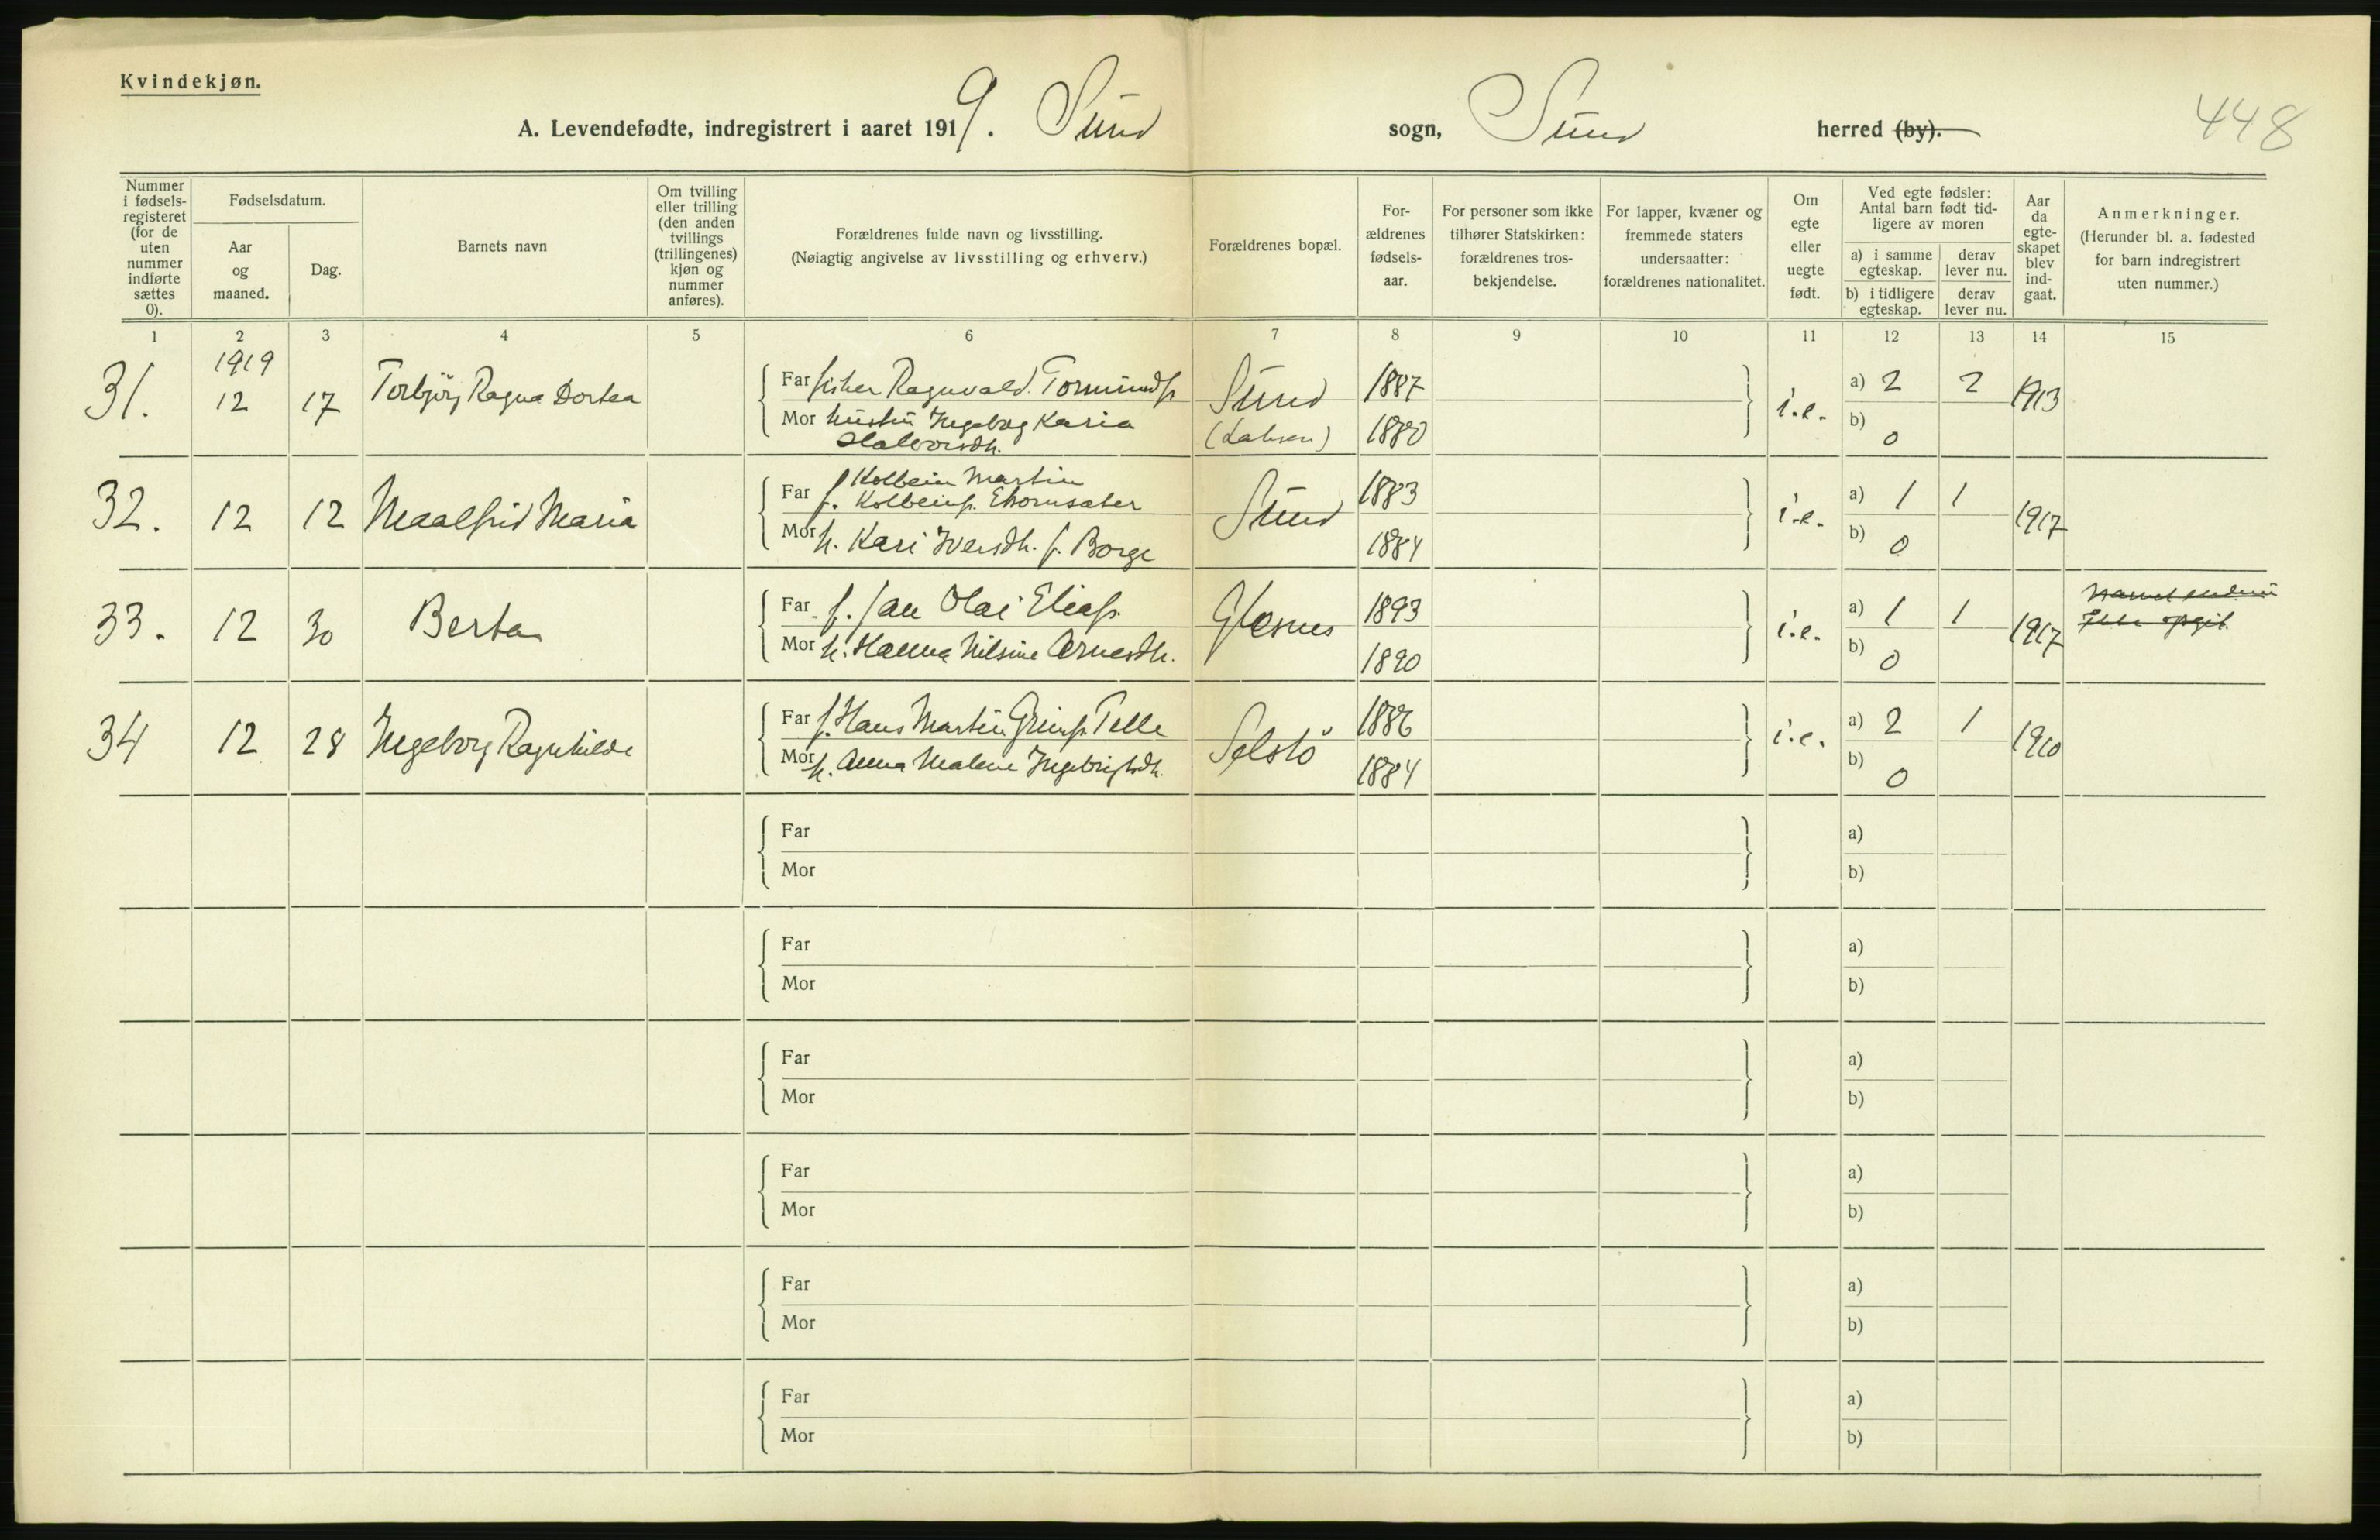 Kvindekjøn.
A. Levendefødte, indregistrert i aaret 1919. Sund sogn, Sund herred (by). 448
Nummer i fødselsregisteret (for de uten nummer indførte sættes 0).
Fødselsdatum.
Aar og maaned.
Dag.
Barnets navn
Om tvilling eller trilling (den anden tvillings (trillingenes) kjøn og nummer anføres).
Forældrenes fulde navn og livsstilling.
(Nøiagtig angivelse av livsstilling og erhverv.)
Forældrenes bopæl.
Forældrenes fødselsaar.
For personer som ikke tilhører Statskirken: forældrenes trosbekjendelse.
For lapper, kvæner og fremmede staters undersaatter: forældrenes nationalitet.
Om egte eller uegte født.
Ved egte fødsler: Antal barn født tidligere av moren
a) i samme egteskap.
derav lever nu.
b) i tidligere egteskap.
derav lever nu.
Aar da egteskapet blev indgaat.
Anmerkninger.
(Herunder bl. a. fødested for barn indregistrert uten nummer.)
1 2 3 4 5 6 7 8 9 10 11 12 13 14 15
1919
31. 12 17 Torbjörg Ragna Dortea
Far fisker Ragnvald Tormundss. Sund 1887 i.e. a) 2 2 1913
Mor hustru Ingeborg Karia (Lahsen) 1880 b) 0
Halvorsdtr.
32. 12 12 Maalfrid Maria
Kolbein Martin
Far f. Kolbeinss. Sund 1883 i.e. a) 1 1 1917
Mor h. Kari Iversdtr. f. Borge 1884 b) 0
33. 12 30 Berta
Far f. Jan Olai Eliass. Glesnes 1893 i.e. a) 1 1 1917
Ikke opgit
Mor h. Hanna Nilsine Arnesdtr. 1890 b) 0
34 12 28 Ingeborg Ragnhilde
Far f. Hans Martin Telle Selstö 1886 i.e. a) 2 1 1910
Mor h. Anna Malene Ingebrigtsdtr. 1884 b) 0
Far a)
Mor b)
Far a)
Mor b)
Far a)
Mor b)
Far a)
Mor b)
Far a)
Mor b)
Far a)
Mor b)